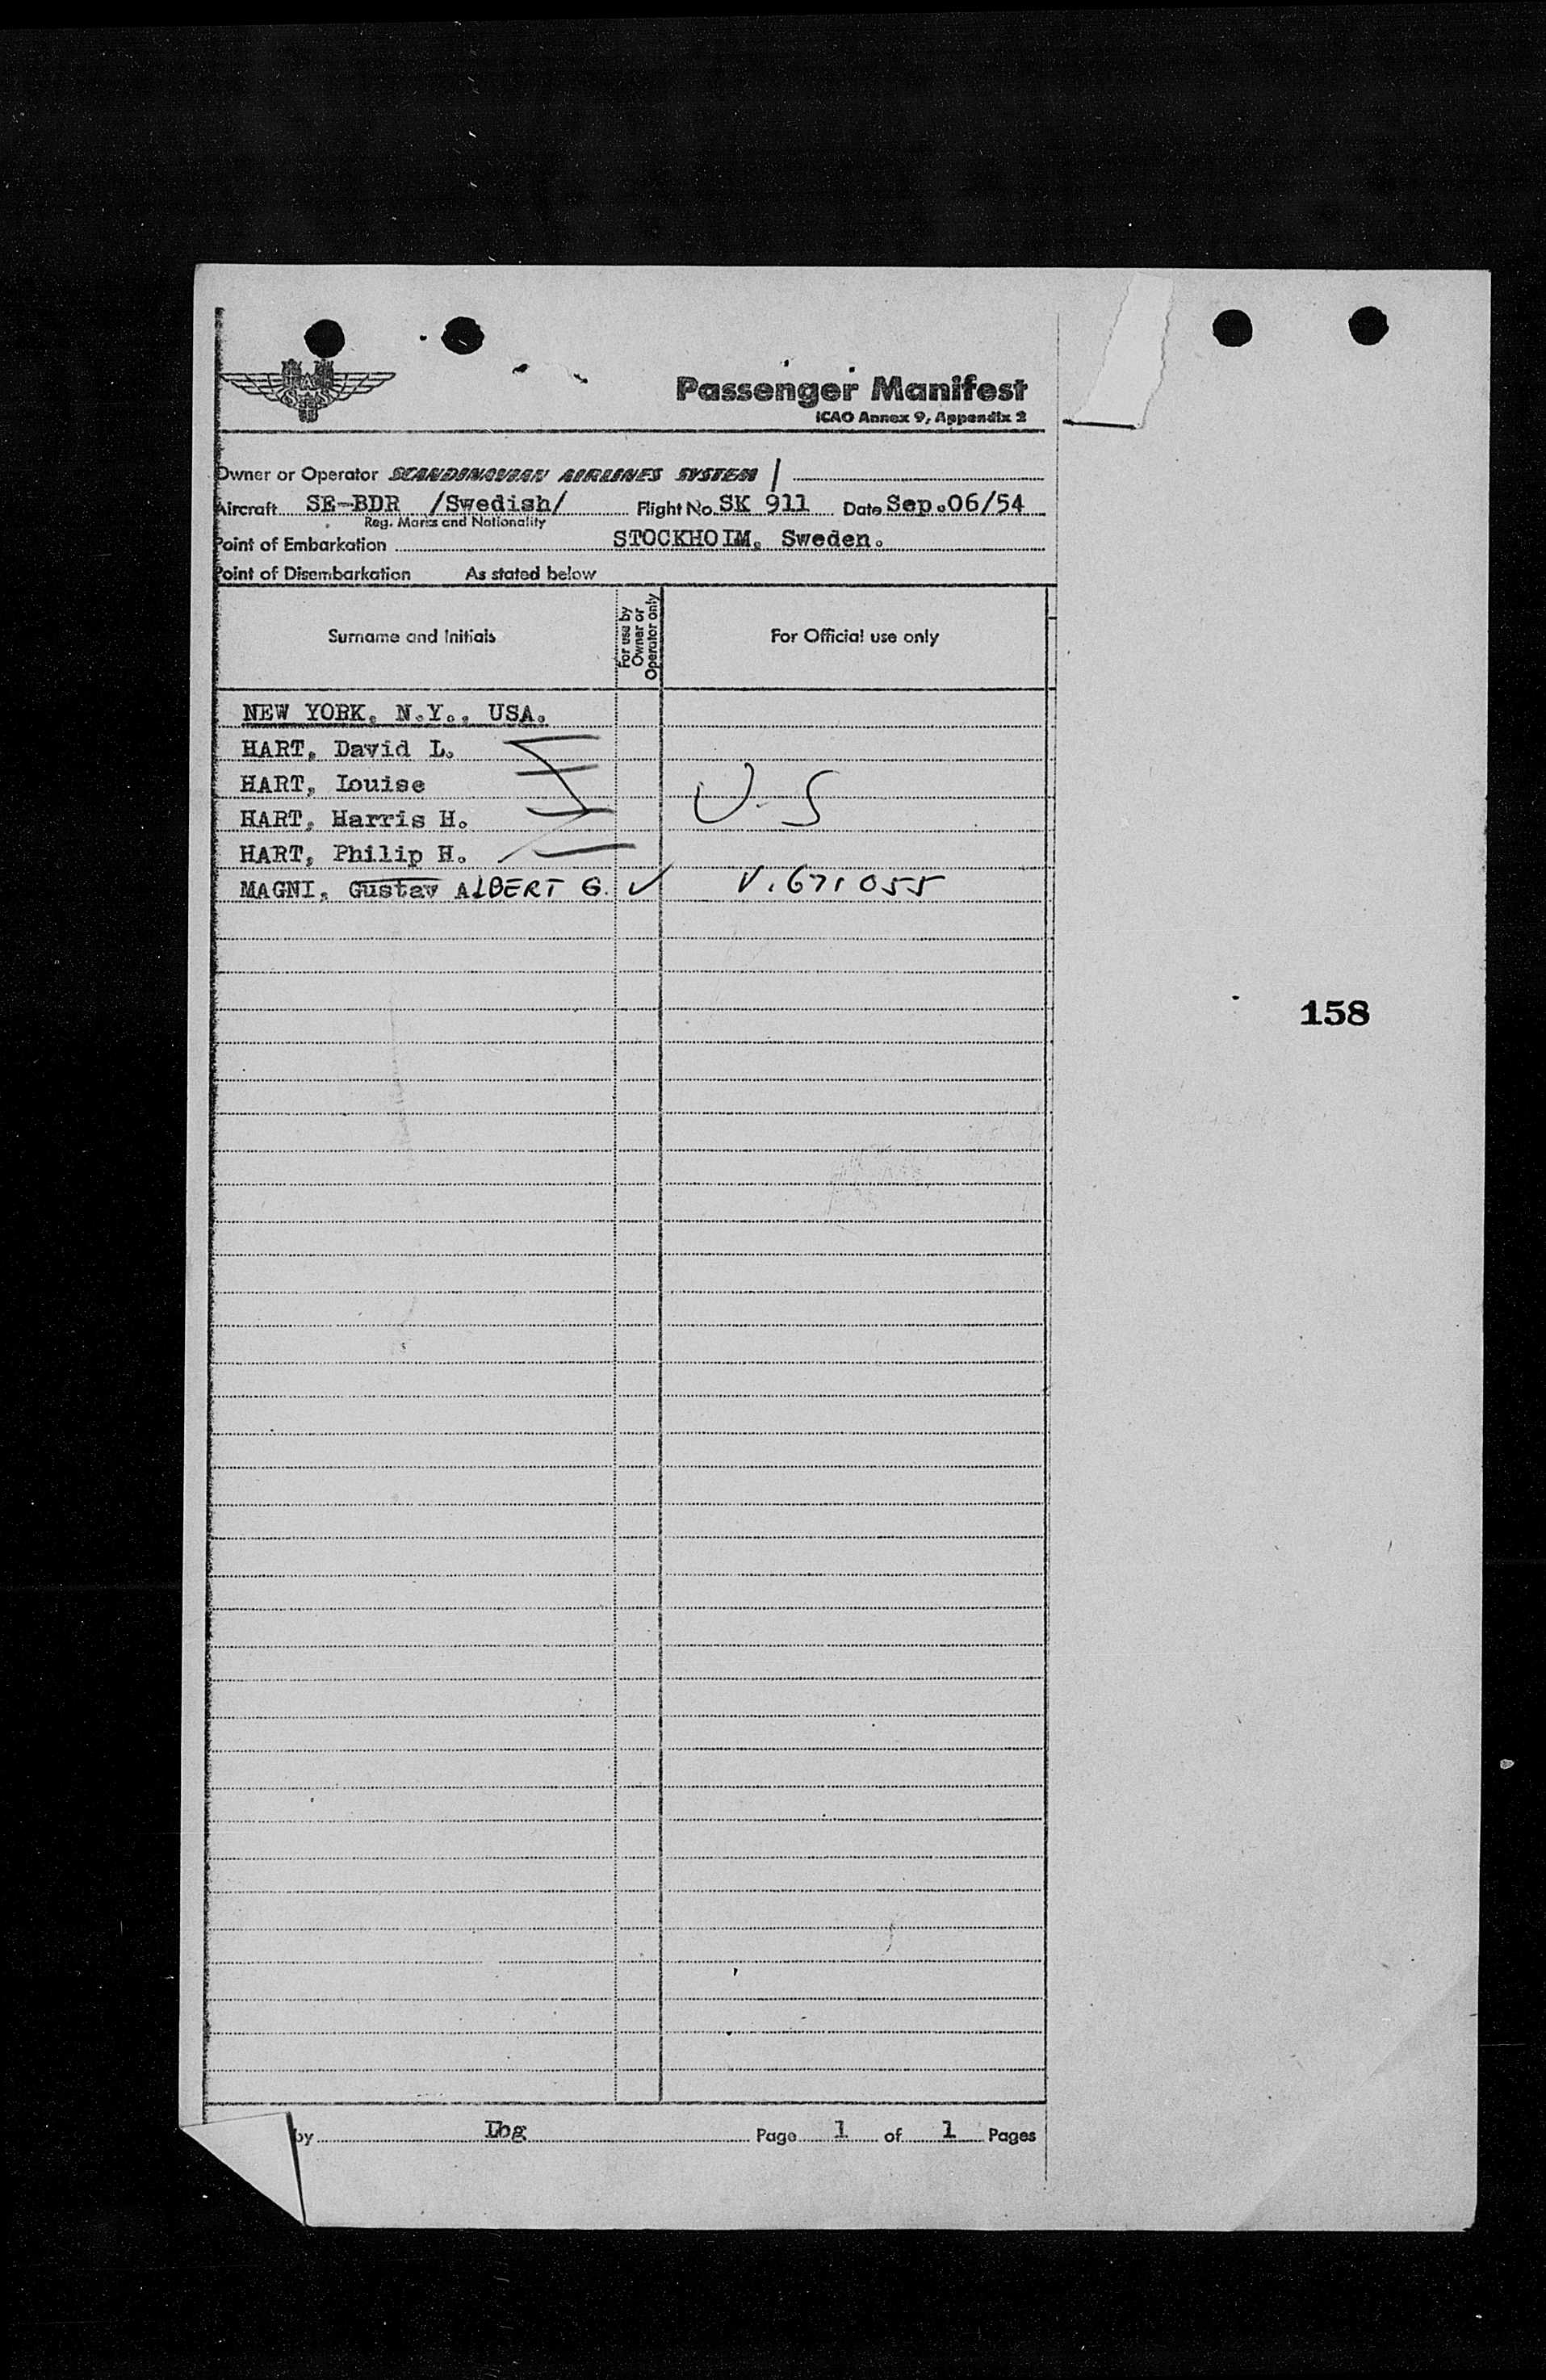 SAS
Passenger Manifest
ICAO Annex 9, Appendix 2
Owner or Operator SCANDINAVIAN AIRLINES SYSTEM /
Aircraft SE-BDR /Swedish/ Flight No. SK 911 Date Sep.06/54
Reg. Marks and Nationality
Point of Embarkation STOCKHOLM, Sweden.
Point of Disembarkation As stated below
Surname and Initials For use by Owner or Operator only For Official use only
NEW YORK, N.Y., USA.
HART, David L.
HART, Louise
HART, Harris H. U.S
HART, Philip H.
MAGNI, Gustav ALBERT G. ✓ V.671055
158
by Lbg Page 1 of 1 Pages